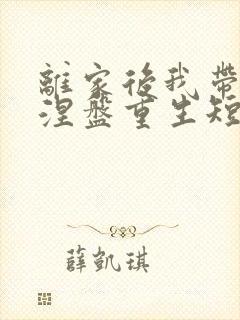 離家後我帶
涅盤重生短
薛凱琪